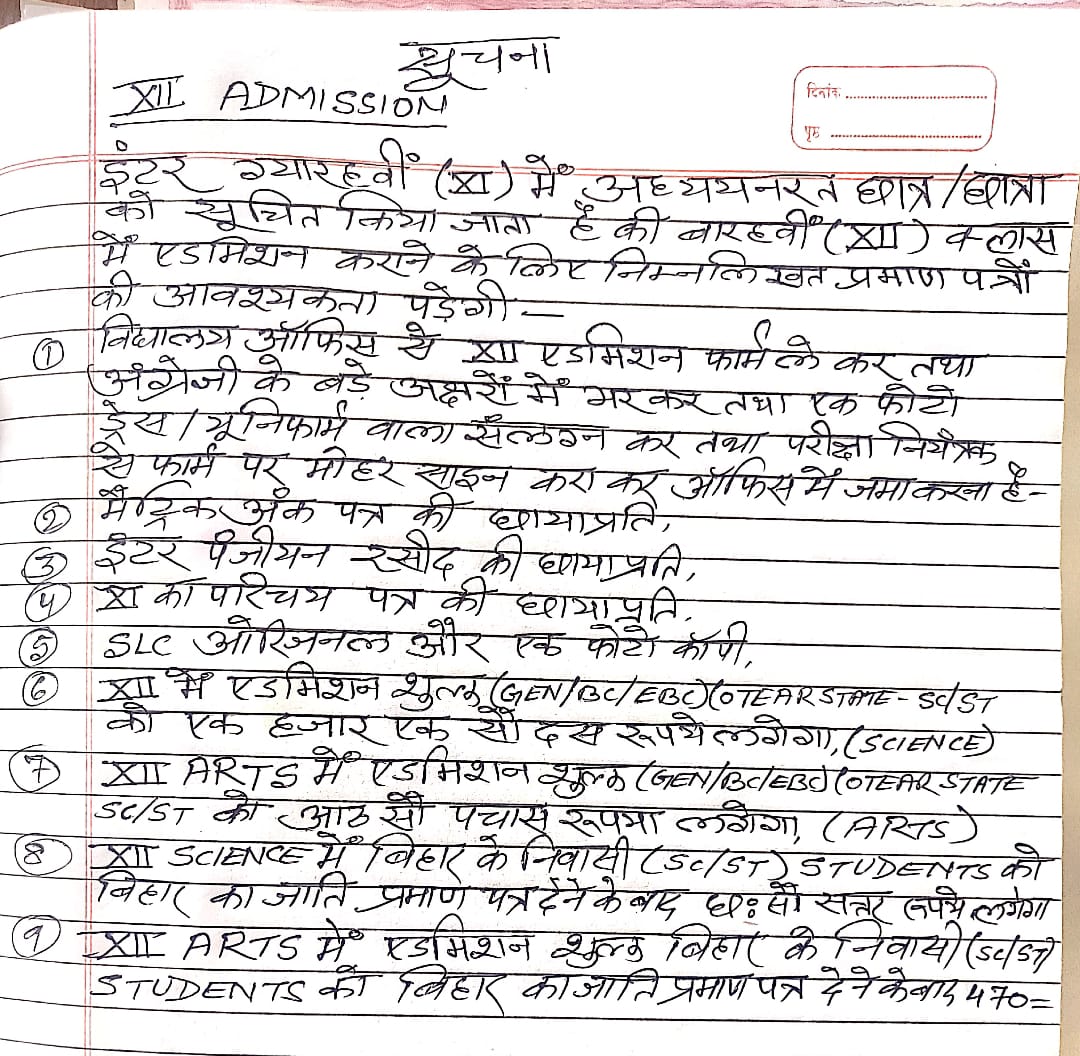 सूचना
XII ADMISSION
दिनांक
पृष्ठ
इंटर ग्यारहवीं (XI) में अध्ययनरत छात्र/छात्रा
को सूचित किया जाता है की बारहवीं (XII) क्लास
में एडमिशन कराने के लिए निम्नलिखत प्रमाण पत्रों
की आवश्यकता पड़ेगी —
① विद्यालय ऑफिस से XII एडमिशन फार्म ले कर तथा
अंग्रेजी के बड़े अक्षरों में भरकर तथा एक फोटो
ड्रेस/यूनिफार्म वाला संलग्न कर तथा परीक्षा नियंत्रक
से फार्म पर मोहर साइन करा कर ऑफिस में जमा करना है-
② मैट्रिक अंक पत्र की छायाप्रति,
③ इंटर पंजीयन रसीद की छायाप्रति,
④ XI का परिचय पत्र की छायाप्रति.
⑤ SLC ओरिजनल और एक फोटो कॉपी,
⑥ XII में एडमिशन शुल्क (GEN/BC/EBC)(OTEAR STATE-SC/ST
को एक हजार एक सौ दस रूपये लगेगा, (SCIENCE)
⑦ XII ARTS में एडमिशन शुल्क (GEN/BC/EBC)(OTEAR STATE
SC/ST को आठ सौ पचास रूपया लगेगा, (ARTS)
⑧ XII SCIENCE में बिहार के निवासी (SC/ST) STUDENTS को
बिहार का जाति प्रमाण पत्र देने के बाद छः सौ सत्तर रूपये लगेगा
⑨ XII ARTS में एडमिशन शुल्क बिहार के निवासी (SC/ST)
STUDENTS को बिहार का जाति प्रमाण पत्र देने के बाद 470=